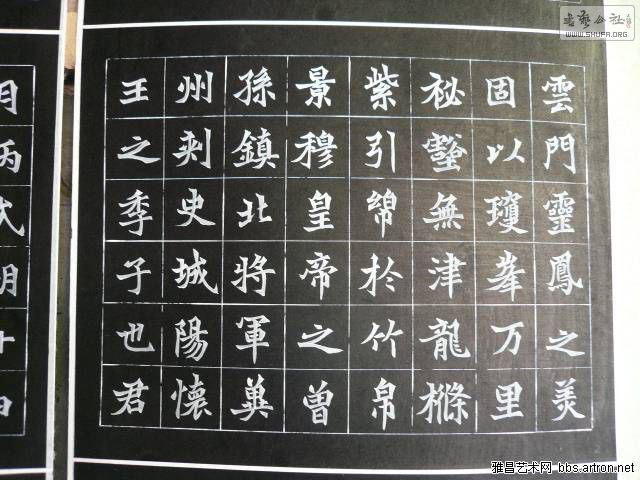 雲門靈鳳之美
固以瓊峯万里
祕壑無津龍樤
紫引綿於竹帛
景穆皇帝之曾
孫鎮北將軍冀
州刺史城陽懷
王之季子也君
月
丙
明
十
WWW.SHUFA.ORG
雅昌艺术网 bbs.artron.net